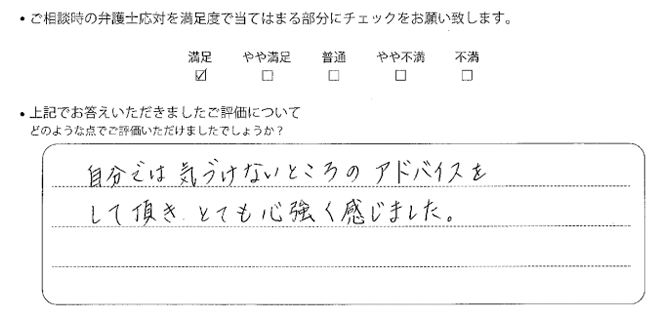 • ご相談時の弁護士応対を満足度で当てはまる部分にチェックをお願い致します。
満足 やや満足 普通 やや不満 不満
☑ ☐ ☐ ☐ ☐
• 上記でお答えいただきましたご評価について
どのような点でご評価いただけましたでしょうか？
自分では気づけないところのアドバイスを
して頂き、とても心強く感じました。